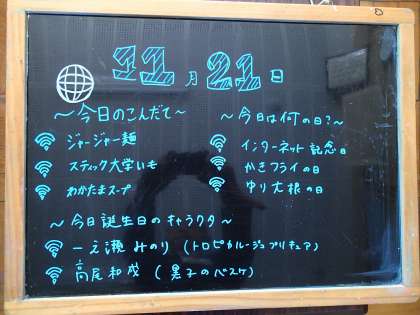 11月21日
~今日のこんだて~
ジャージャー麺
スティック大学いも
わかたまスープ
~今日は何の日?~
インターネット記念日
かきフライの日
ゆり大根の日
~今日誕生日のキャラクタ~
一之瀬みのり(トロピカル~ジュプリキュア)
高尾和成(黒子のバスケ)